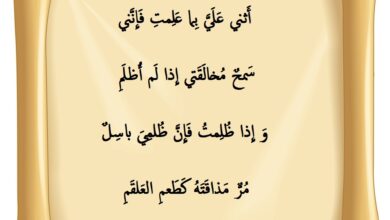 أَثني عَلَيَّ بِما عَلِمتِ فَإِنَّني
سَمحٌ مُخالَقَتي إِذا لَم أُظلَمِ
وَ إِذا ظُلِمتُ فَإِنَّ ظُلمِيَ باسِلٌ
مُرٌّ مَذاقَتَهُ كَطَعمِ العَلقَمِ